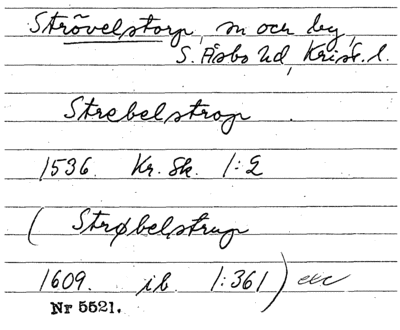 Strövelstorp, sn och by,
S. Åsbo hd, Krist. l.
Strebelstrop
1536. Kr. Sk. 1:2
( Strøbelstrup
1609. ib 1:361) etc
Nr 5521.